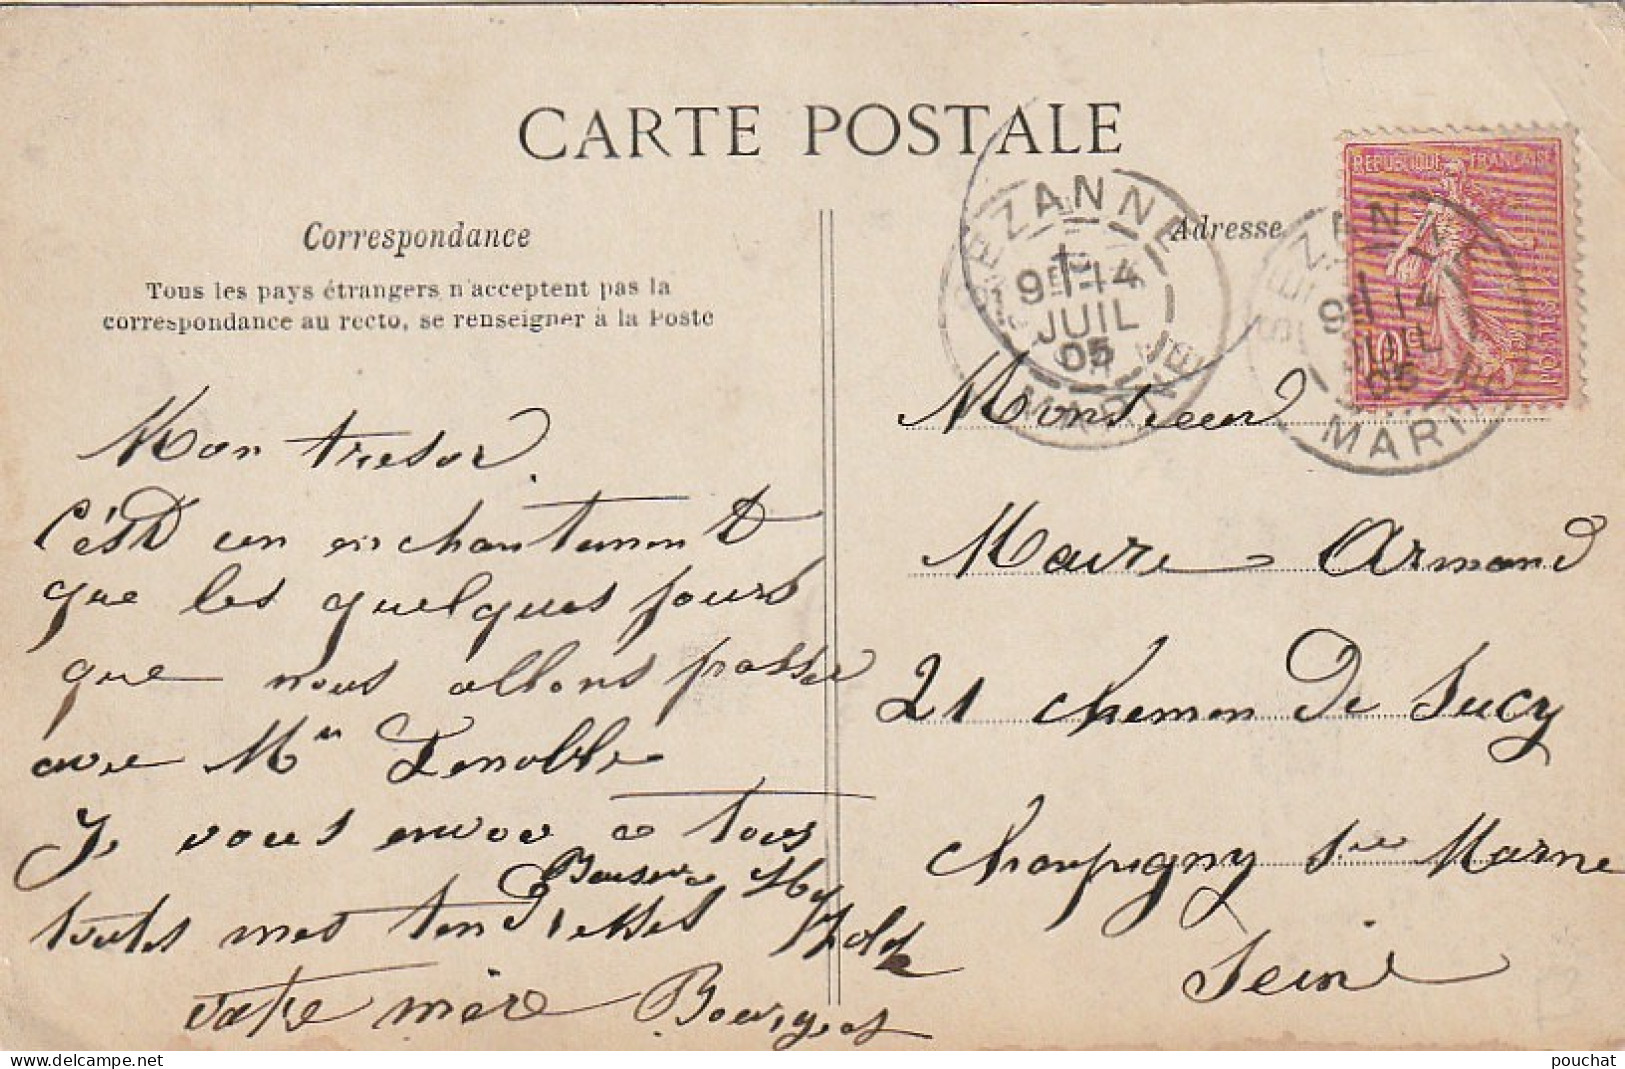 CARTE POSTALE
Correspondance
Tous les pays étrangers n'acceptent pas la
correspondance au recto, se renseigner à la Poste
Mon tresor
C'est un enchantement
que les quelques jours
que nous allons passer
avec Mme Lenoble
Je vous envoie a tous
toutes mes tendresses
votre mère Bourgeot
Adresse
SEZANNE
9E 14
JUIL
05
MARNE
REPUBLIQUE FRANÇAISE
POSTES
10c
SEZANNE
9E 14
JUIL
05
MARNE
Monsieur
Maire Armand
21 chemin De Sucy
Champigny sur Marne
Seine
pouchat